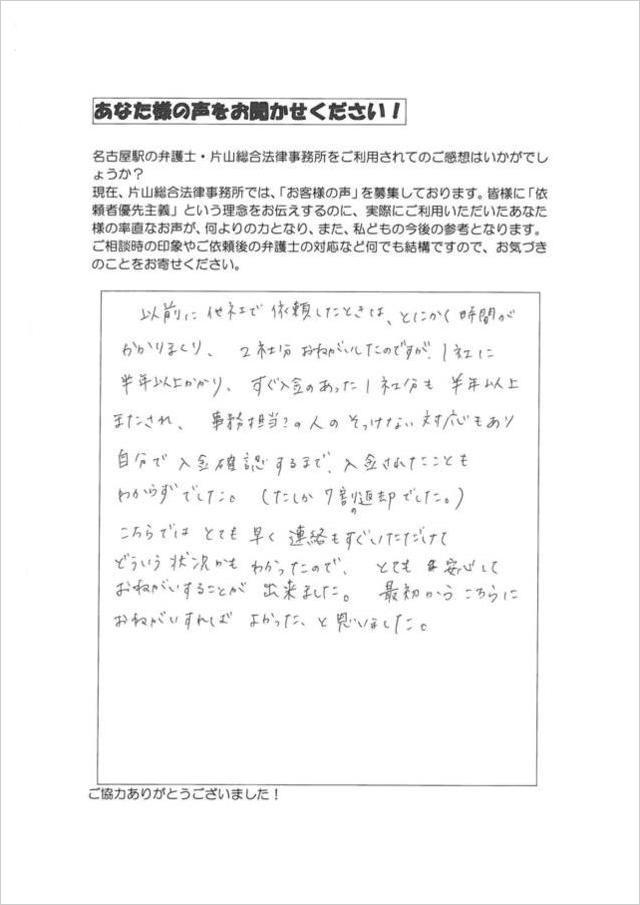 あなた様の声をお聞かせください！
名古屋駅の弁護士・片山総合法律事務所をご利用されてのご感想はいかがでし
ょうか？
現在、片山総合法律事務所では、「お客様の声」を募集しております。皆様に「依
頼者優先主義」という理念をお伝えするのに、実際にご利用いただいたあなた
様の率直なお声が、何よりの力となり、また、私どもの今後の参考となります。
ご相談時の印象やご依頼後の弁護士の対応など何でも結構ですので、お気づき
のことをお寄せください。
以前に他社で依頼したときは、とにかく時間が
かかりまくり、2社分おねがいしたのですが、1社に
半年以上かかり、すぐ入金のあった1社分も半年以上
またされ、事務担当?の人のそっけない対応もあり
自分で入金確認するまで、入金されたことも
わからずでした。（たしか7割の返却でした。）
こちらではとても早く連絡もすぐいただけて
どういう状況かもわかったので、とても安心して
おねがいすることが出来ました。最初からこちらに
おねがいすればよかった、と思いました。
ご協力ありがとうございました！